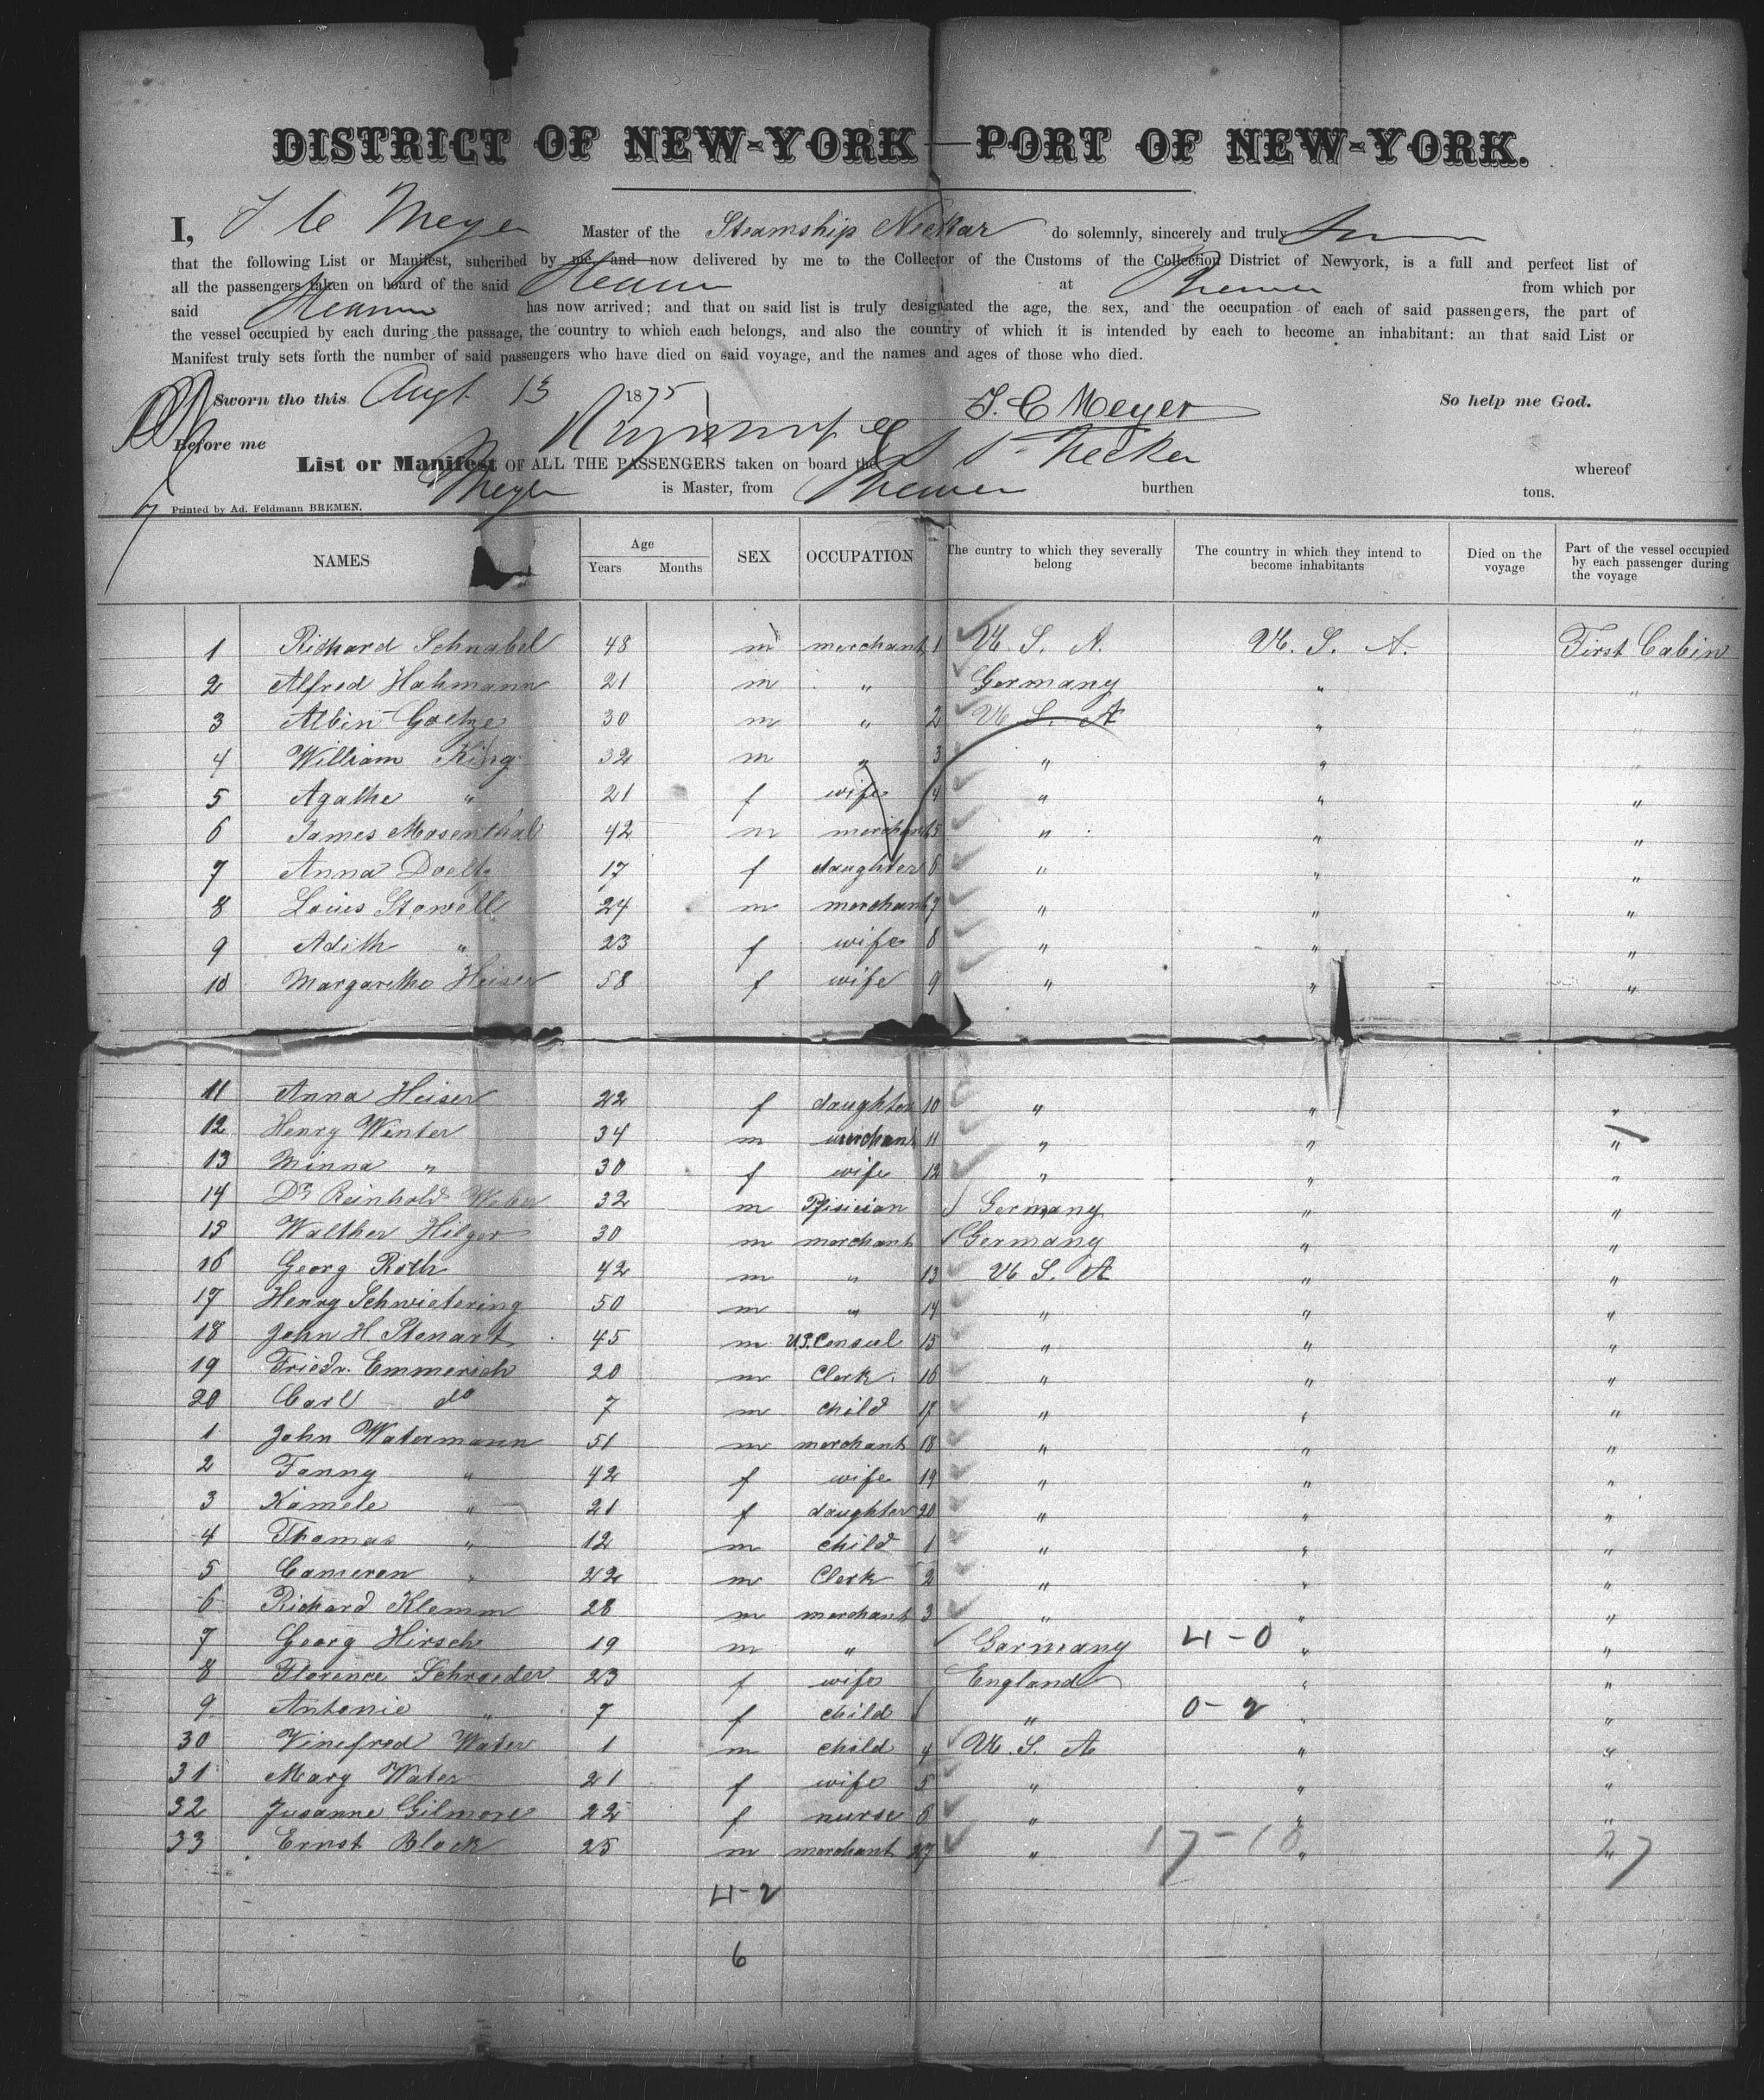 DISTRICT OF NEW-YORK—PORT OF NEW-YORK.
I, J C Meyer Master of the Steamship Neckar do solemnly, sincerely and truly
that the following List or Manifest, suberibed by me and now delivered by me to the Collector of the Customs of the Collection District of Newyork, is a full and perfect list of
all the passengers taken on board of the said Steamer at Bremen from which por
said Steamer has now arrived; and that on said list is truly designated the age, the sex, and the occupation of each of said passengers, the part of
the vessel occupied by each during the passage, the country to which each belongs, and also the country of which it is intended by each to become an inhabitant: an that said List or
Manifest truly sets forth the number of said passengers who have died on said voyage, and the names and ages of those who died.
Sworn tho this Augt 13 1875 J. C Meyer So help me God.
Before me
List or Manifest OF ALL THE PASSENGERS taken on board the S S Neckar whereof
Meyer is Master, from Bremen burthen tons.
Printed by Ad. Feldmann BREMEN.
NAMES Age Years Months SEX OCCUPATION The cuntry to which they severally belong The country in which they intend to become inhabitants Died on the voyage Part of the vessel occupied by each passenger during the voyage
1 Richard Schnabel 48 m merchant 1 U. S. A. U. S. A. First Cabin
2 Alfred Hahmann 21 m " Germany " "
3 Albin Goetze 30 m " 2 U S. A "
4 William King 32 m " 3 " " "
5 Agathe " 21 f wife 4 " " "
6 James Mosenthal 42 m merchant 5 " " "
7 Anna Doelt 17 f daughter 6 " " "
8 Louis Stowell 24 m merchant 7 " " "
9 Adith " 23 f wife 8 " " "
10 Margarethe Heiser 58 f wife 9 " " "
11 Anna Heiser 22 f daughter 10 " " "
12 Henry Winter 34 m merchant 11 " " "
13 Minna " 30 f wife 12 " " "
14 Dr Reinhold Weber 32 m Pfisician Germany " "
15 Walther Hilger 30 m merchant Germany " "
16 Georg Roth 42 m " 13 U. S. A " "
17 Henry Schwietering 50 m " 14 " " "
18 John H. Stenart 45 m U.S. Consul 15 " " "
19 Friedr. Emmerich 20 m Clerk. 16 " " "
20 Carl do 7 m child 17 " " "
1 John Watermann 51 m merchant 18 " " "
2 Fanny " 42 f wife 19 " " "
3 Kamele " 21 f daughter 20 " " "
4 Thomas " 12 m child 1 " " "
5 Cameron " 22 m Clerk 2 " " "
6 Richard Klemm 28 m merchant 3 " " "
7 Georg Hirsch 19 m " Germany 4-0 " "
8 Florence Schroeder 23 f wife England " "
9 Antonie " 7 f child " 0-2 " "
30 Vinefred Water 1 m child 4 U. S. A " "
31 Mary Water 21 f wife 5 " " "
32 Susanne Gilmore 22 f nurse 6 " " "
33 Ernst Block 25 m merchant 27 " 17-10 " 27
4-2
6